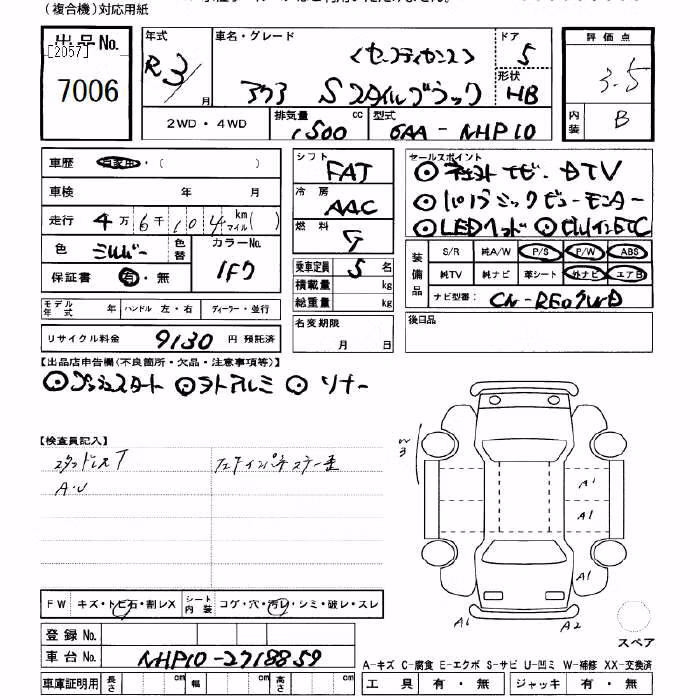 (複合機)対応用紙
出品No. [2057] 7006
年式 R3/ 月
車名・グレード <セーフティセンス>
アクア Sスタイルブラック
ドア 5
形状 HB
評価点 3.5
内装 B
2WD・4WD
排気量 1500 cc
型式 6AA-NHP10
車歴 自家用・( )
車検 年 月
走行 4万6千104 km マイル( )
色 シルバー 色替 カラーNo. 1F7
保証書 有・無
シフト FAT
冷房 AAC
燃料 G
乗車定員 5 名
積載量 kg
総重量 kg
セールスポイント
◎ DTV
◎ パノラミックビューモニター
◎ LEDヘッド ◎ ビルトインETC
装備品 S/R 純A/W P/S P/W ABS
純TV 純ナビ 革シート 外ナビ エアB
ナビ型番:
モデル年式 年 ハンドル 左・右 ディーラー・並行
リサイクル料金 9130 円 預託済
名変期限 月 日
後日品
【出品店申告欄(不良箇所・欠品・注意事項等)】
◎プッシュスタート ◎ ◎ ソナー
【検査員記入】
スタッドレスT
A・U
W3
A1
A1
A1
A1 A2
FW キズ・トビ石・割レX シート内装 コゲ・穴・汚レ・シミ・破レ・スレ
スペア
登録No.
車台No. NHP10-2718859
A-キズ C-腐食 E-エクボ S-サビ U-凹ミ W-補修 XX-交換済
車庫証明用 長さ cm 幅 cm 高さ cm 工具 有・無 ジャッキ 有・無